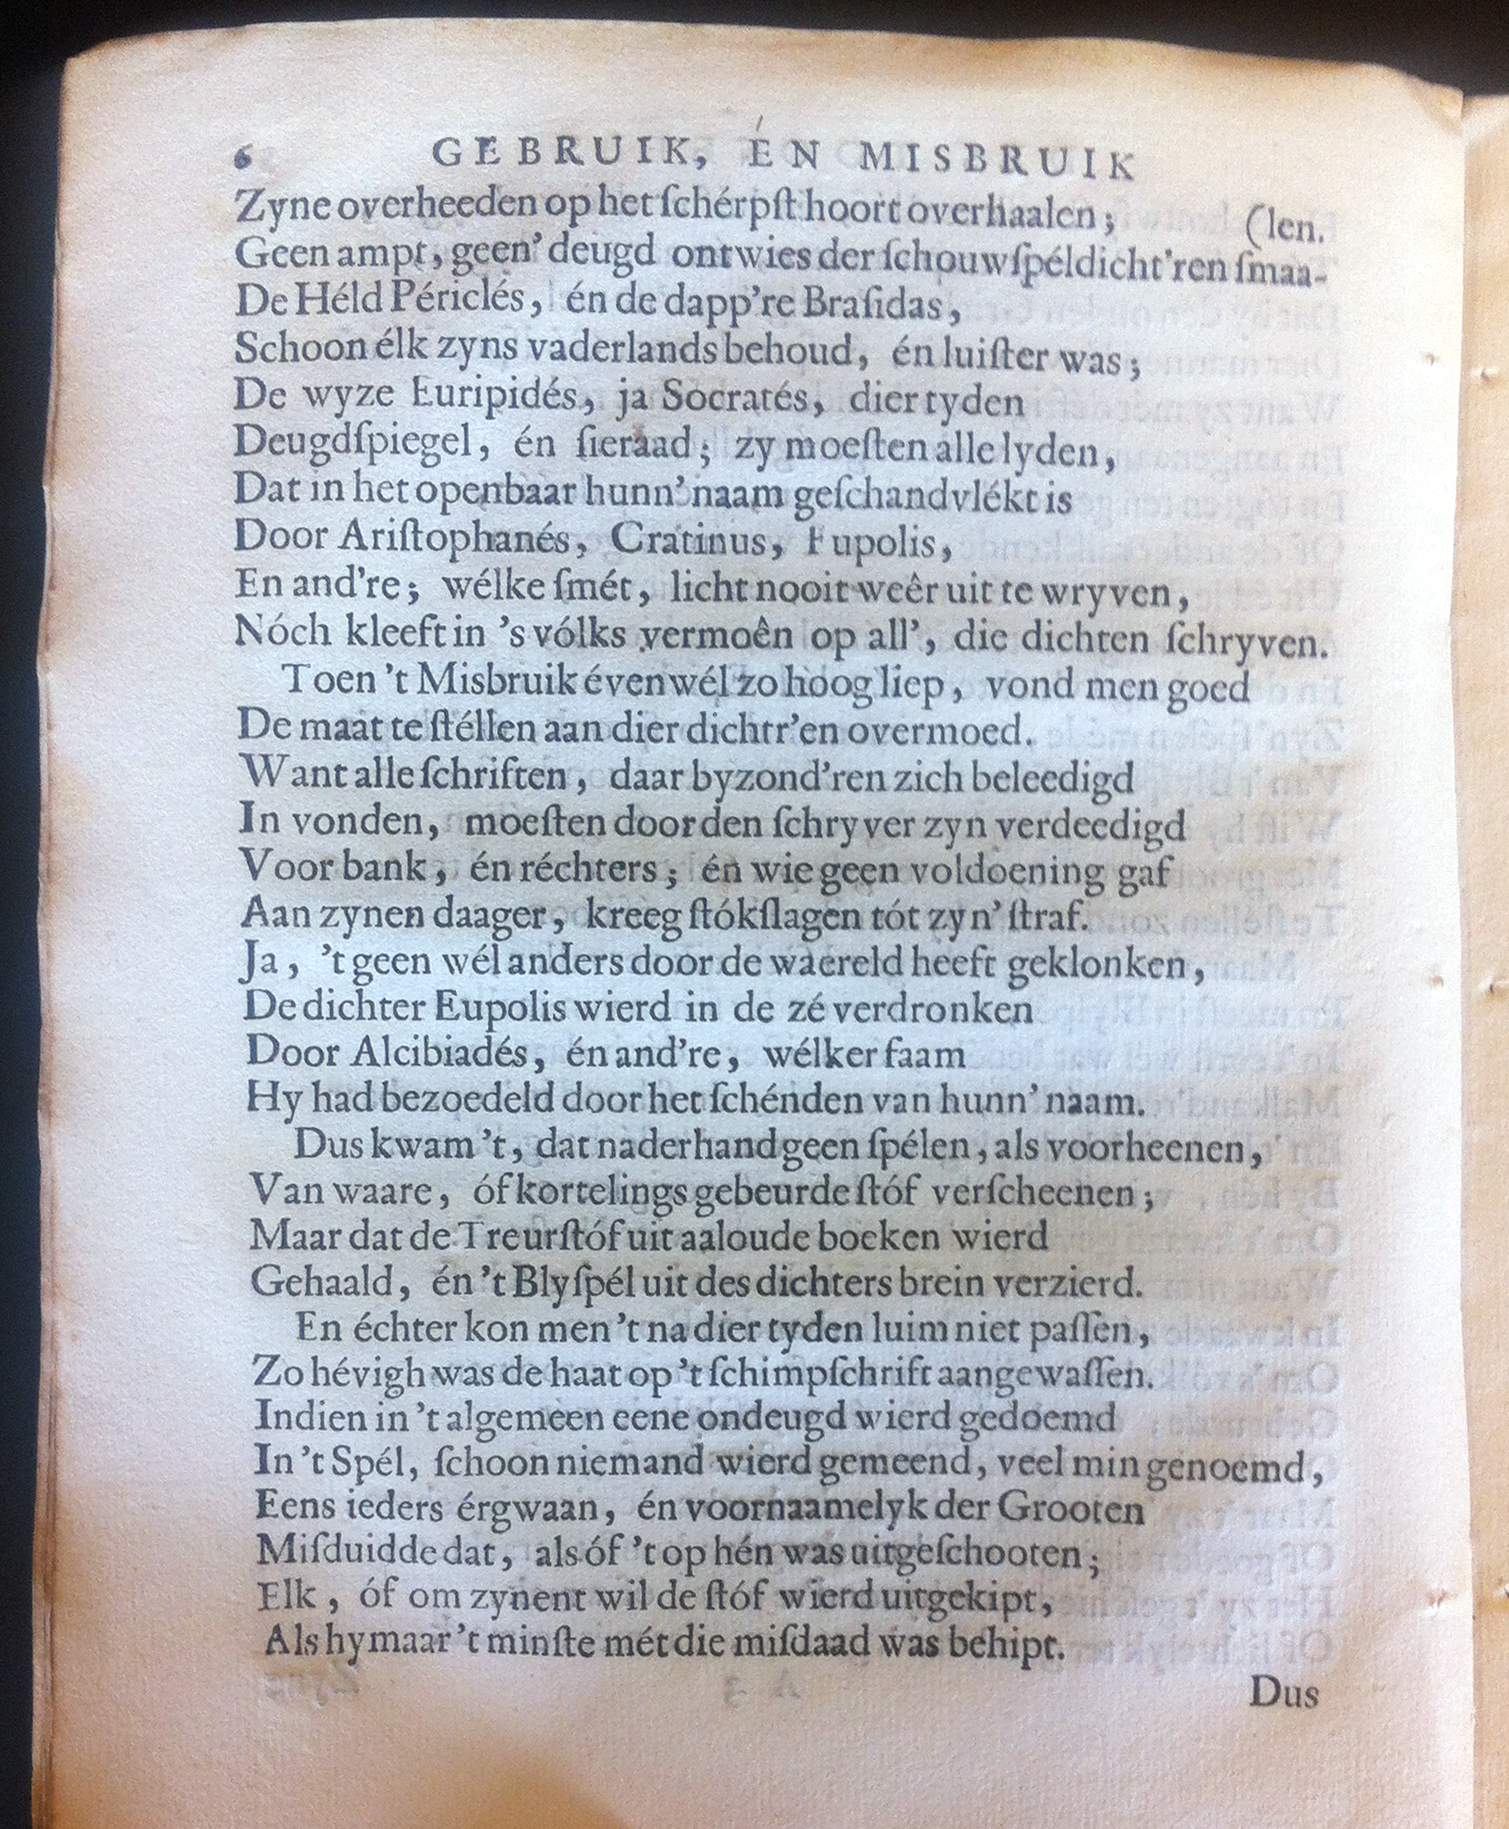 6 GEBRUIK, ÉN MISBRUIK
Zyne overheeden op het ſchérpſt hoort overhaalen; (len.
Geen ampt, geen' deugd ontwies der ſchouwſpéldicht'ren ſmaa-
De Héld Périclés, én de dapp're Braſidas,
Schoon élk zyns vaderlands behoud, én luiſter was;
De wyze Euripidés, ja Socratés, dier tyden
Deugdſpiegel, én ſieraad; zy moeſten alle lyden,
Dat in het openbaar hunn' naam geſchandvlékt is
Door Ariſtophanés, Cratinus, Eupolis,
En and're; wélke ſmét, licht nooit weêr uit te wryven,
Nóch kleeft in 's vólks vermoên op all', die dichten ſchryven.
Toen 't Misbruik évenwél zo hoog liep, vond men goed
De maat te ſtéllen aan dier dichtr'en overmoed.
Want alle ſchriften, daar byzond'ren zich beleedigd
In vonden, moeſten door den ſchryver zyn verdeedigd
Voor bank, én réchters; én wie geen voldoening gaf
Aan zynen daager, kreeg ſtókſlagen tót zyn' ſtraf.
Ja, 't geen wél anders door de waereld heeft geklonken,
De dichter Eupolis wierd in de zé verdronken
Door Alcibiadés, én and're, wélker faam
Hy had bezoedeld door het ſchénden van hunn' naam.
Dus kwam 't, dat naderhand geen ſpélen, als voorheenen,
Van waare, óf kortelings gebeurde ſtóf verſcheenen;
Maar dat de Treurſtóf uit aaloude boeken wierd
Gehaald, én 't Blyſpél uit des dichters brein verzierd.
En échter kon men 't na dier tyden luim niet paſſen,
Zo hévigh was de haat op 't ſchimpſchrift aangewaſſen.
Indien in 't algemeen eene ondeugd wierd gedoemd
In 't Spél, ſchoon niemand wierd gemeend, veel min genoemd,
Eens ieders érgwaan, én voornaamelyk der Grooten
Miſduidde dat, als óf 't op hén was uitgeſchooten;
Elk, óf om zynent wil de ſtóf wierd uitgekipt,
Als hy maar 't minſte mét die miſdaad was behipt.
Dus